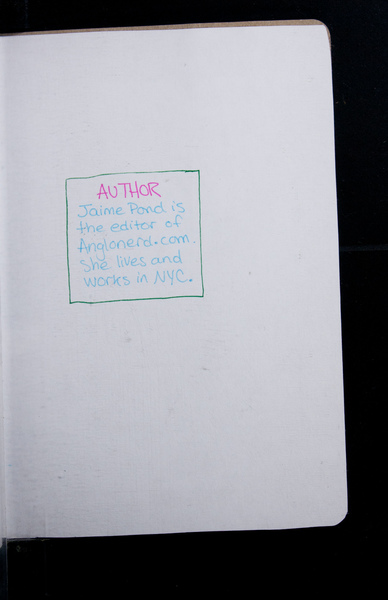 AUTHOR
Jaime Pond is
the editor of
Anglonerd.com.
She lives and
works in NYC.